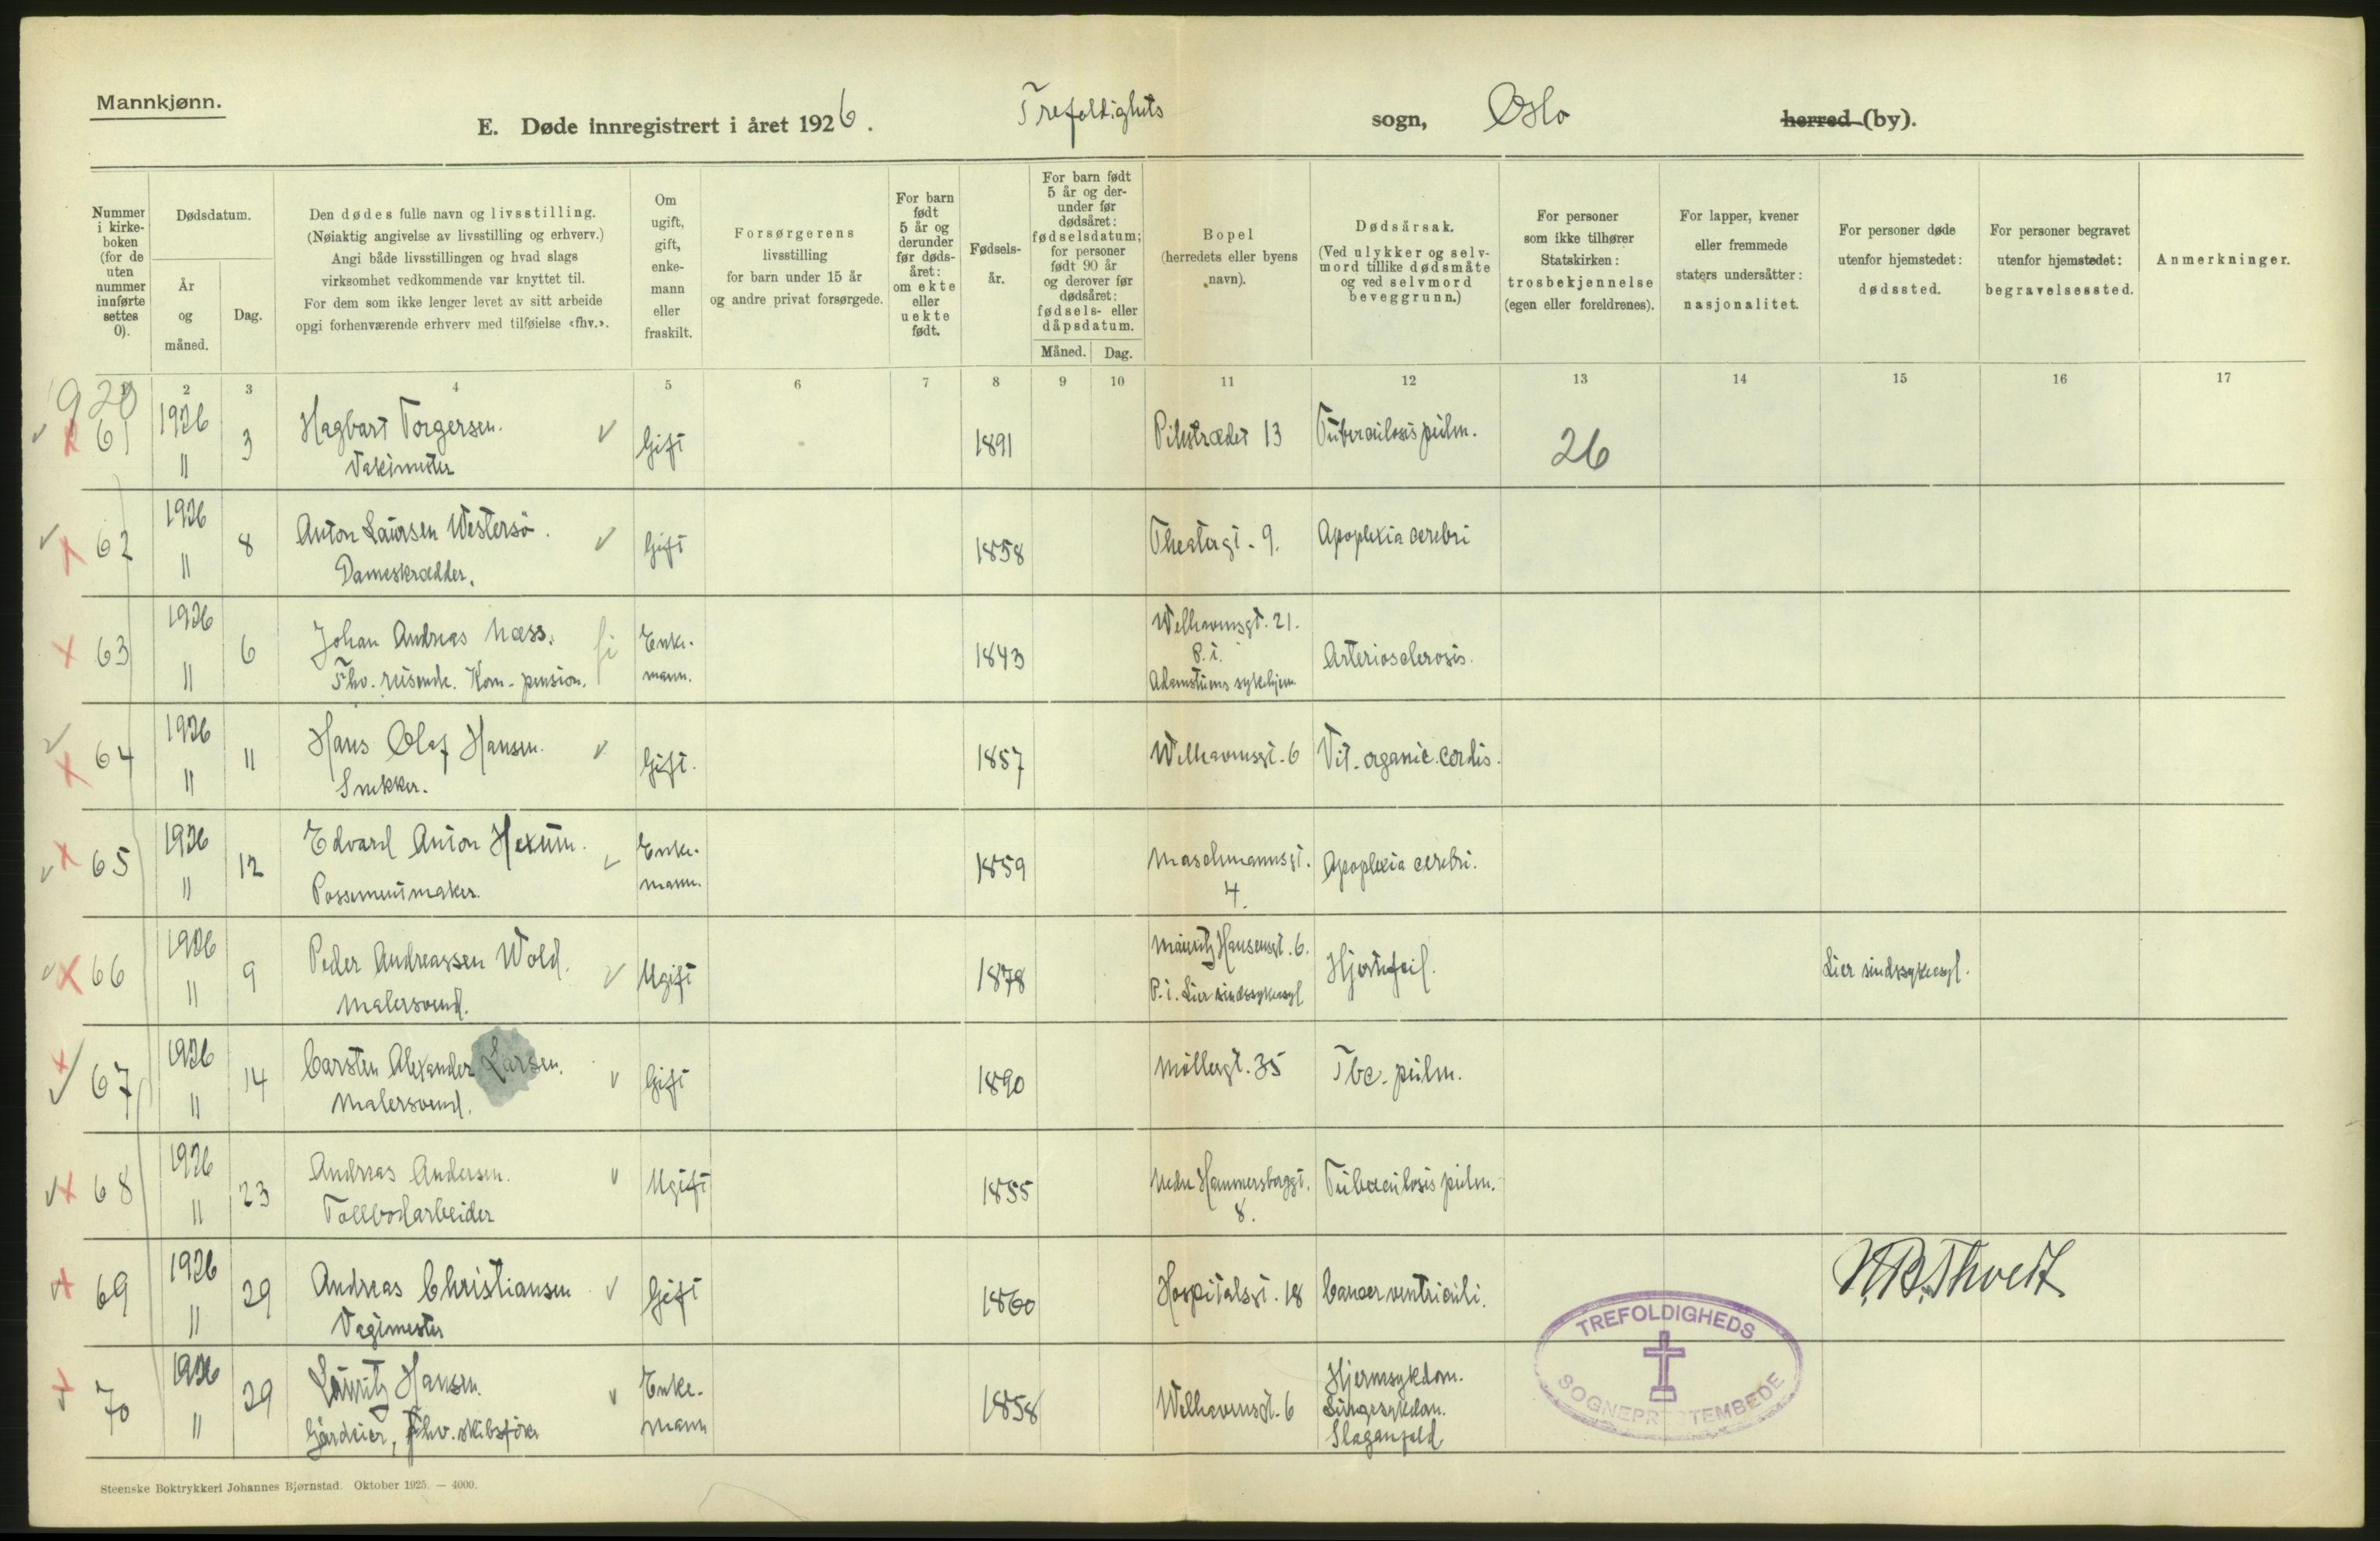 Mannkjønn.
E. Døde innregistrert i året 1926. Trefoldighets sogn, Oslo herred (by).
Nummer i kirkeboken (for de uten nummer innførte settes 0).
Dødsdatum.
År og måned.
Dag.
Den dødes fulle navn og livsstilling.
(Nøiaktig angivelse av livsstilling og erhverv.)
Angi både livsstillingen og hvad slags
virksomhet vedkommende var knyttet til.
For dem som ikke lenger levet av sitt arbeide
opgi forhenværende erhverv med tilføielse «fhv.».
Om ugift, gift, enkemann eller fraskilt.
Forsørgerens
livsstilling
for barn under 15 år
og andre privat forsørgede.
For barn født 5 år og derunder før dødsåret: om ekte eller uekte født.
Fødselsår.
For barn født 5 år og derunder før dødsåret: fødselsdatum; for personer født 90 år og derover før dødsåret: fødsels- eller dåpsdatum.
Måned. Dag.
Bopel
(herredets eller byens navn).
Dødsårsak.
(Ved ulykker og selvmord tillike dødsmåte og ved selvmord beveggrunn.)
For personer som ikke tilhører Statskirken: trosbekjennelse (egen eller foreldrenes).
For lapper, kvener eller fremmede staters undersåtter: nasjonalitet.
For personer døde utenfor hjemstedet: dødssted.
For personer begravet utenfor hjemstedet: begravelsessted.
Anmerkninger.
1 2 3 4 5 6 7 8 9 10 11 12 13 14 15 16 17
1920
61 1926 11 3 Hagbart Torgersen. Gift 1891 Pilestrædet 13 Tuberculosis pulm. 26
Vaktmester
62 1926 11 8 Anton Laursen Westersö. Gift 1858 Theatergt. 9. Apoplexia cerebri
Dameskrædder.
63 1926 11 6 Johan Andreas Næss. Enkemann. 1843 Welhavensgt. 21. P. t. Adamstuens sykehjem Arteriosclerosis.
Fhv. reisende. Kom. pension.
64 1926 11 11 Hans Olaf Hansen. Gift. 1857 Welhavensgt. 6 Vit. organic. cordis.
Snekker.
65 1926 11 12 Edvard Anton Hexum. Enkemann. 1859 Maschmannsgt. 4. Apoplexia cerebri.
Possementmaker.
66 1926 11 9 Peder Andreassen Wold. Ugift 1878 Mauritz Hansensgt. 6. P. t. Lier sindssykeasyl Hjertefeil. Lier sindssykeasyl.
Malersvend.
67 1926 11 14 Carsten Alexander Larsen. Gift 1890 Møllergt. 35 Tbc. pulm.
Malersvend.
68 1926 11 23 Andreas Andersen. Ugift 1855 Nedre Hammersborggt. 8. Tuberculosis pulm.
Tollbodarbeider
69 1926 11 29 Andreas Christiansen Gift 1860 Hospitalsgt. 18 Cancer ventriculi.
Vagtmester
70 1926 11 29 Lauritz Hansen. Enkemann 1858 Welhavensgt. 6 Hjernesykdom. Lungesykdom. Slaganfald
Gårdeier, Fhv. skibsfører
TREFOLDIGHEDS
SOGNEPRESTEMBEDE
Steenske Boktrykkeri Johannes Bjørnstad. Oktober 1925. — 4000.